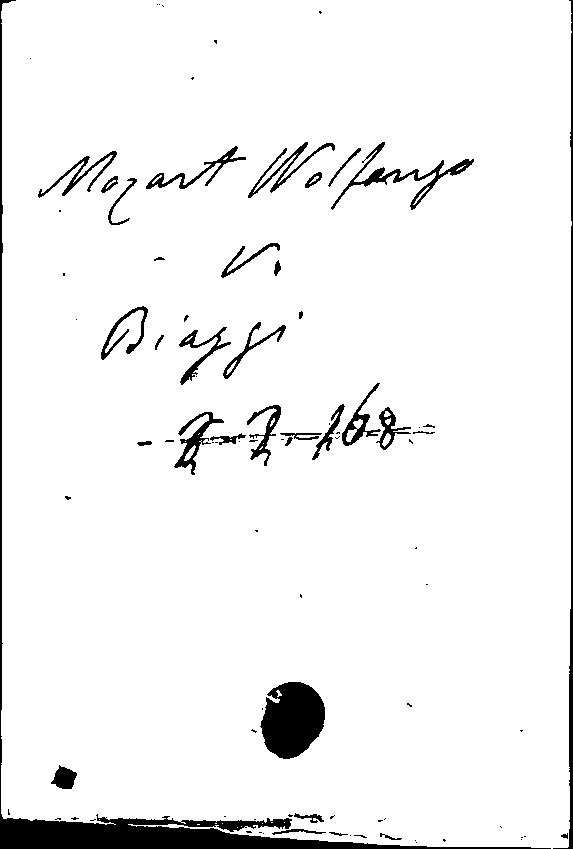 Mozart Wolfango
v.
Biaggi